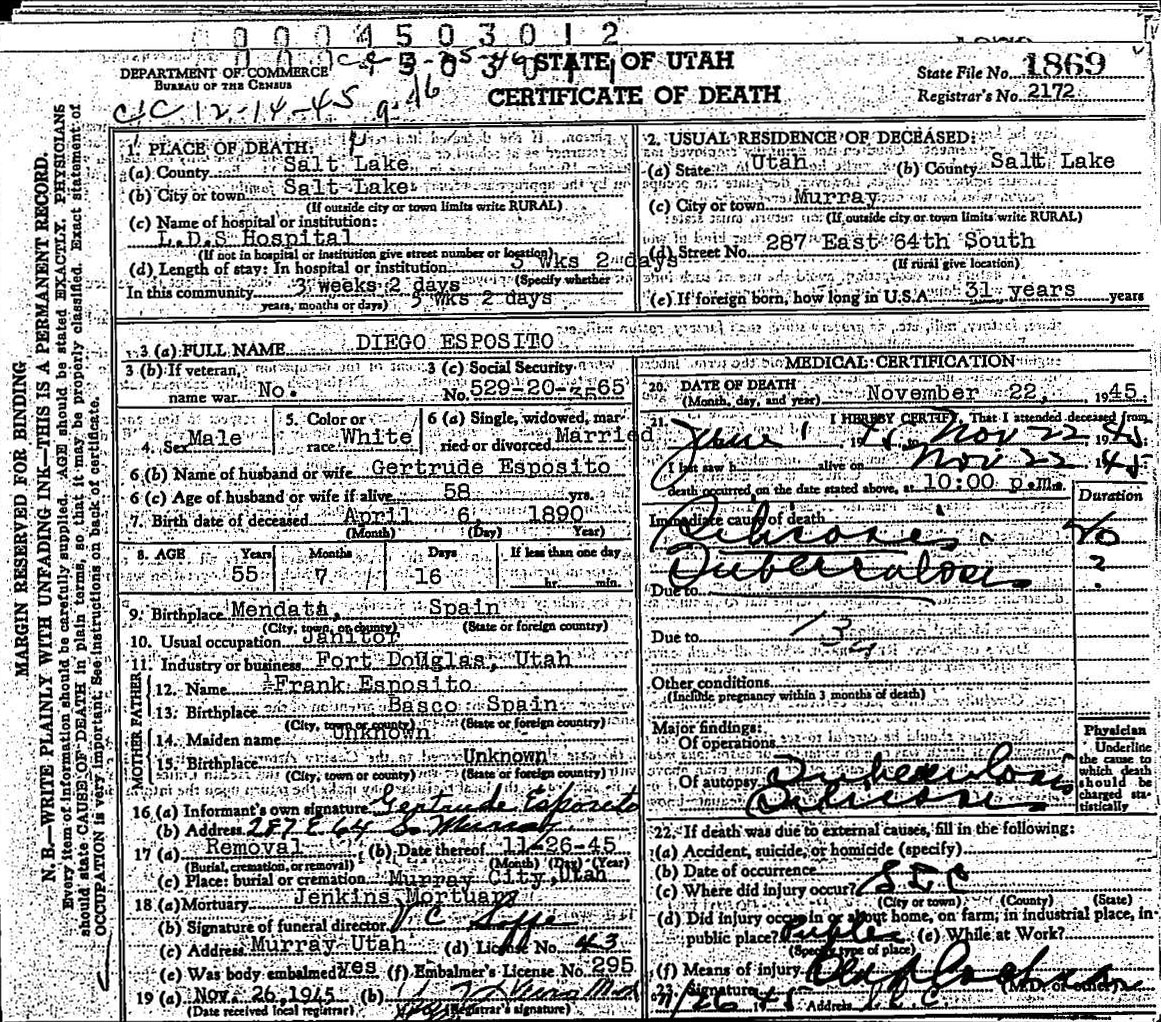 0 0 0 4 5 0 3 0 1 2
DEPARTMENT OF COMMERCE
BUREAU OF THE CENSUS
STATE OF UTAH
CERTIFICATE OF DEATH
State File No. 1869
Registrar's No. 2172
CIC 12-14-45
MARGIN RESERVED FOR BINDING
N. B.—WRITE PLAINLY WITH UNFADING INK—THIS IS A PERMANENT RECORD.
Every item of information should be carefully supplied. AGE should be stated EXACTLY. PHYSICIANS
should state CAUSE OF DEATH in plain terms, so that it may be properly classified. Exact statement of
OCCUPATION is very important. See instructions on back of certificate.
1. PLACE OF DEATH:
(a) County Salt Lake
(b) City or town Salt Lake
(If outside city or town limits write RURAL)
(c) Name of hospital or institution:
L.D.S Hospital
(If not in hospital or institution give street number or location)
(d) Length of stay: In hospital or institution 3 Wks 2 days
(Specify whether
In this community 3 weeks 2 days
years, months or days) 3 Wks 2 days
2. USUAL RESIDENCE OF DECEASED:
(a) State Utah (b) County Salt Lake
(c) City or town Murray
(If outside city or town limits write RURAL)
(d) Street No 287 East 64th South
(If rural give location)
(e) If foreign born, how long in U.S.A. 31 years years
3 (a) FULL NAME DIEGO ESPOSITO
3 (b) If veteran, name war No.
3 (c) Social Security No. 529-20- 65
4. Sex Male
5. Color or race White
6 (a) Single, widowed, married or divorced Married
6 (b) Name of husband or wife Gertrude Esposito
6 (c) Age of husband or wife if alive 58 yrs.
7. Birth date of deceased April 6, 1890
(Month) (Day) (Year)
8. AGE Years Months Days If less than one day
55 7 16 hr. min.
9. Birthplace Mendata, Spain
(City, town, or county) (State or foreign country)
10. Usual occupation Janitor
11. Industry or business Fort Douglas, Utah
FATHER
12. Name Frank Esposito
13. Birthplace Basco Spain
(City, town or county) (State or foreign country)
MOTHER
14. Maiden name Unknown
15. Birthplace Unknown
(City, town or county) (State or foreign country)
16 (a) Informant's own signature Gertrude Esposito
(b) Address 287 E 64 So Murray
17 (a) Removal (b) Date thereof 11-26-45
(Burial, cremation, or removal) (Month) (Day) (Year)
(c) Place: burial or cremation Murray City, Utah
18 (a) Mortuary Jenkins Mortuary
(b) Signature of funeral director
(c) Address Murray Utah (d) License No. 43
(e) Was body embalmed yes (f) Embalmer's License No. 295
19 (a) Nov. 26, 1945 (b)
(Date received local registrar) (Registrar's signature)
MEDICAL CERTIFICATION
20. DATE OF DEATH
(Month, day, and year) November 22, 1945
21. I HEREBY CERTIFY, That I attended deceased from
June 1 19 45 to Nov 22 1945
I last saw h alive on Nov 22 1945
death occurred on the date stated above, at 10:00 p.m.
Duration
Immediate cause of death
Silicosis
Tuberculosis ?
Due to
Due to
Other conditions
(Include pregnancy within 3 months of death)
Major findings:
Of operations
Of autopsy Tuberculosis
Silicosis
Physician
Underline
the cause to
which death
should be
charged statistically
22. If death was due to external causes, fill in the following:
(a) Accident, suicide, or homicide (specify)
(b) Date of occurrence
(c) Where did injury occur? S L C
(City or town) (County) (State)
(d) Did injury occur in or about home, on farm, in industrial place, in
public place? (e) While at Work?
(Specify type of place)
(f) Means of injury
23. Signature (M.D. or other)
11/26 45 Address S. L. C.